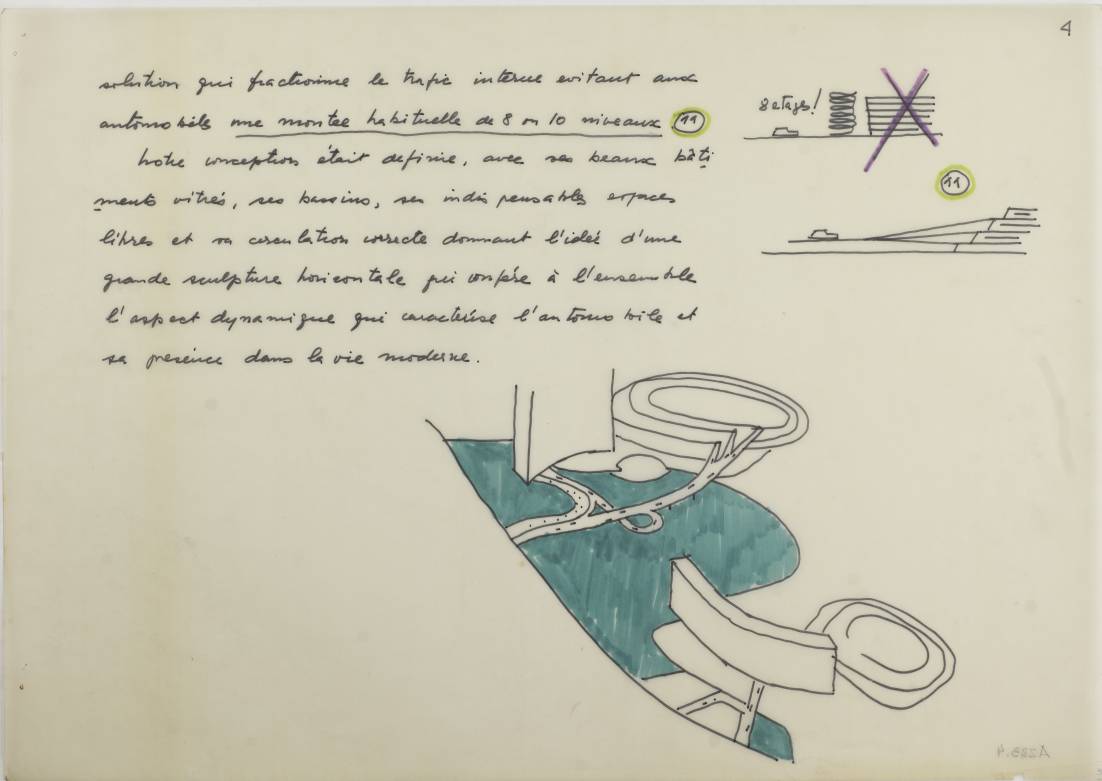 4
solution qui fractionne le trafic interne evitant aux
automobils une montée habituelle de 8 ou 10 niveaux. 11
Notre conception était definie, avec ses beaux bâti
ments vitrés, ses bassins, ses indispensables espaces
libres et sa circulation correcte donnant l'idée d'une
grande sculpture horizontale qui confère à l'ensemble
l'aspect dynamique qui caractérise l'automobile et
sa presénce dans la vie moderne.
8 etages!
11